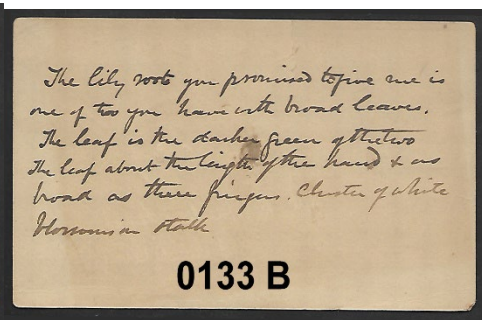 The lily roots you promised to give me is
one of two you have with broad leaves.
The leaf is the darker green of the two
The leaf about the length of the hand & as
broad as three fingers. Cluster of white
blossoms on stalk
0133 B